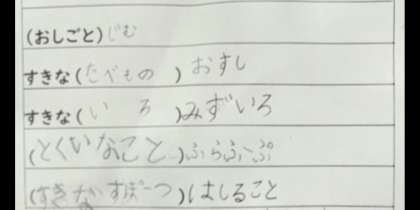 (おしごと)じむ
すきな(たべもの)おすし
すきな(いろ)みずいろ
(とくいなこと)ふらふーぷ
(すきなすぽーつ)はしること